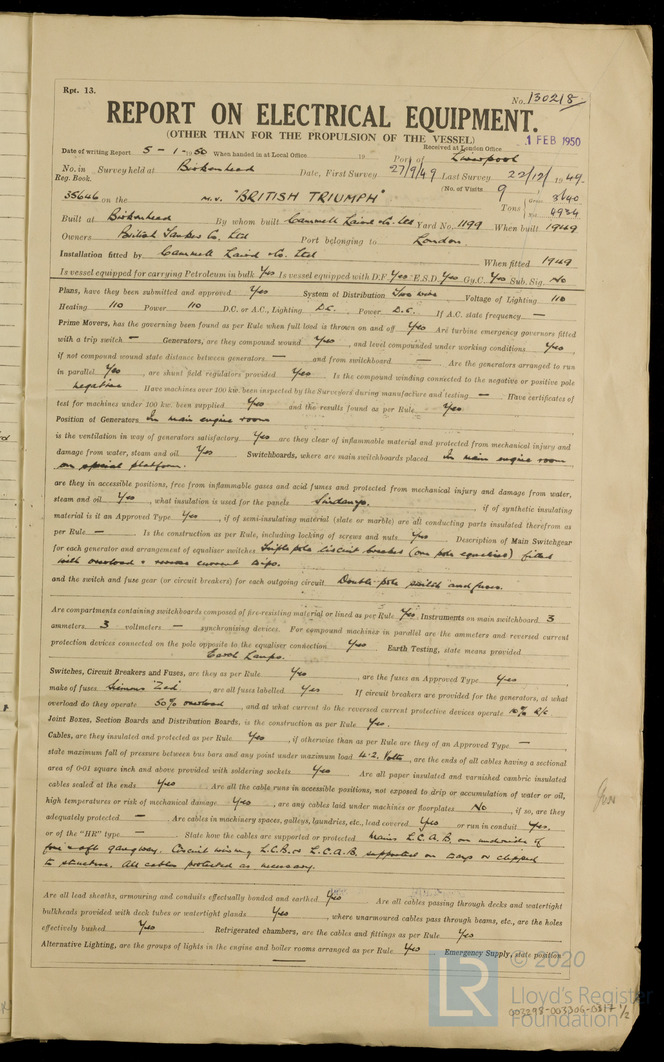 Rpt. 13.
No. 130218
REPORT ON ELECTRICAL EQUIPMENT.
(OTHER THAN FOR THE PROPULSION OF THE VESSEL)
1 FEB 1950
Received at London Office
Date of writing Report 5 - 1 - 1950 When handed in at Local Office 19 Port of Liverpool
No. in Survey held at Birkenhead Date, First Survey 27/9/49 Last Survey 22/12/1949.
Reg. Book. (No. of Visits 9
35646 on the M.V. "BRITISH TRIUMPH" Tons Gross Net 4934
Built at Birkenhead By whom built Cammell Laird & Co. Ltd Yard No. 1199 When built 1949
Owners British Tanker Co. Ltd Port belonging to London.
Installation fitted by Cammell Laird & Co. Ltd When fitted 1949
Is vessel equipped for carrying Petroleum in bulk Yes Is vessel equipped with D.F. Yes E.S.D. Yes Gy.C. Yes Sub. Sig. No
Plans, have they been submitted and approved Yes System of Distribution Two wire Voltage of Lighting 110
Heating 110 Power 110 D.C. or A.C., Lighting D.C. Power D.C. If A.C. state frequency —
Prime Movers, has the governing been found as per Rule when full load is thrown on and off Yes Are turbine emergency governors fitted
with a trip switch — Generators, are they compound wound Yes, and level compounded under working conditions Yes,
if not compound wound state distance between generators — and from switchboard — Are the generators arranged to run
in parallel Yes, are shunt field regulators provided Yes Is the compound winding connected to the negative or positive pole
negative Have machines over 100 kw. been inspected by the Surveyors during manufacture and testing — Have certificates of
test for machines under 100 kw. been supplied Yes and the results found as per Rule Yes
Position of Generators In main engine room
is the ventilation in way of generators satisfactory Yes are they clear of inflammable material and protected from mechanical injury and
damage from water, steam and oil Yes Switchboards, where are main switchboards placed In main engine room
on special platform.
are they in accessible positions, free from inflammable gases and acid fumes and protected from mechanical injury and damage from water,
steam and oil Yes, what insulation is used for the panels Sindanyo, if of synthetic insulating
material is it an Approved Type Yes, if of semi-insulating material (slate or marble) are all conducting parts insulated therefrom as
per Rule — Is the construction as per Rule, including locking of screws and nuts Yes Description of Main Switchgear
for each generator and arrangement of equaliser switches Triple pole circuit breaker (one pole equalising) fitted
with overload & reverse current trips.
and the switch and fuse gear (or circuit breakers) for each outgoing circuit Double-pole switch and fuses.
Are compartments containing switchboards composed of fire-resisting material or lined as per Rule Yes Instruments on main switchboard 3
ammeters 3 voltmeters — synchronising devices. For compound machines in parallel are the ammeters and reversed current
protection devices connected on the pole opposite to the equaliser connection Yes Earth Testing, state means provided
Earth Lamps.
Switches, Circuit Breakers and Fuses, are they as per Rule Yes, are the fuses an Approved Type Yes,
make of fuses Siemens "Zed", are all fuses labelled Yes If circuit breakers are provided for the generators, at what
overload do they operate 50% overload, and at what current do the reversed current protective devices operate 10% R/c
Joint Boxes, Section Boards and Distribution Boards, is the construction as per Rule Yes.
Cables, are they insulated and protected as per Rule Yes, if otherwise than as per Rule are they of an Approved Type —,
state maximum fall of pressure between bus bars and any point under maximum load 4.2 Volts, are the ends of all cables having a sectional
area of 0·01 square inch and above provided with soldering sockets Yes Are all paper insulated and varnished cambric insulated
cables sealed at the ends Yes Are all the cable runs in accessible positions, not exposed to drip or accumulation of water or oil,
high temperatures or risk of mechanical damage Yes, are any cables laid under machines or floorplates No, if so, are they
adequately protected — Are cables in machinery spaces, galleys, laundries, etc., lead covered Yes or run in conduit Yes,
or of the "HR" type — State how the cables are supported or protected Mains L.C.A.B. on underside of
fore & aft gangway. Circuit wiring L.C.B. & L.C.A.B. supported on trays or clipped
to structure. All cables protected as necessary.
Are all lead sheaths, armouring and conduits effectually bonded and earthed Yes Are all cables passing through decks and watertight
bulkheads provided with deck tubes or watertight glands Yes, where unarmoured cables pass through beams, etc., are the holes
effectively bushed Yes Refrigerated chambers, are the cables and fittings as per Rule Yes
Alternative Lighting, are the groups of lights in the engine and boiler rooms arranged as per Rule Yes Emergency Supply, state position
LR © 2020
Lloyd's Register
Foundation
003298-003306-0317 1/2